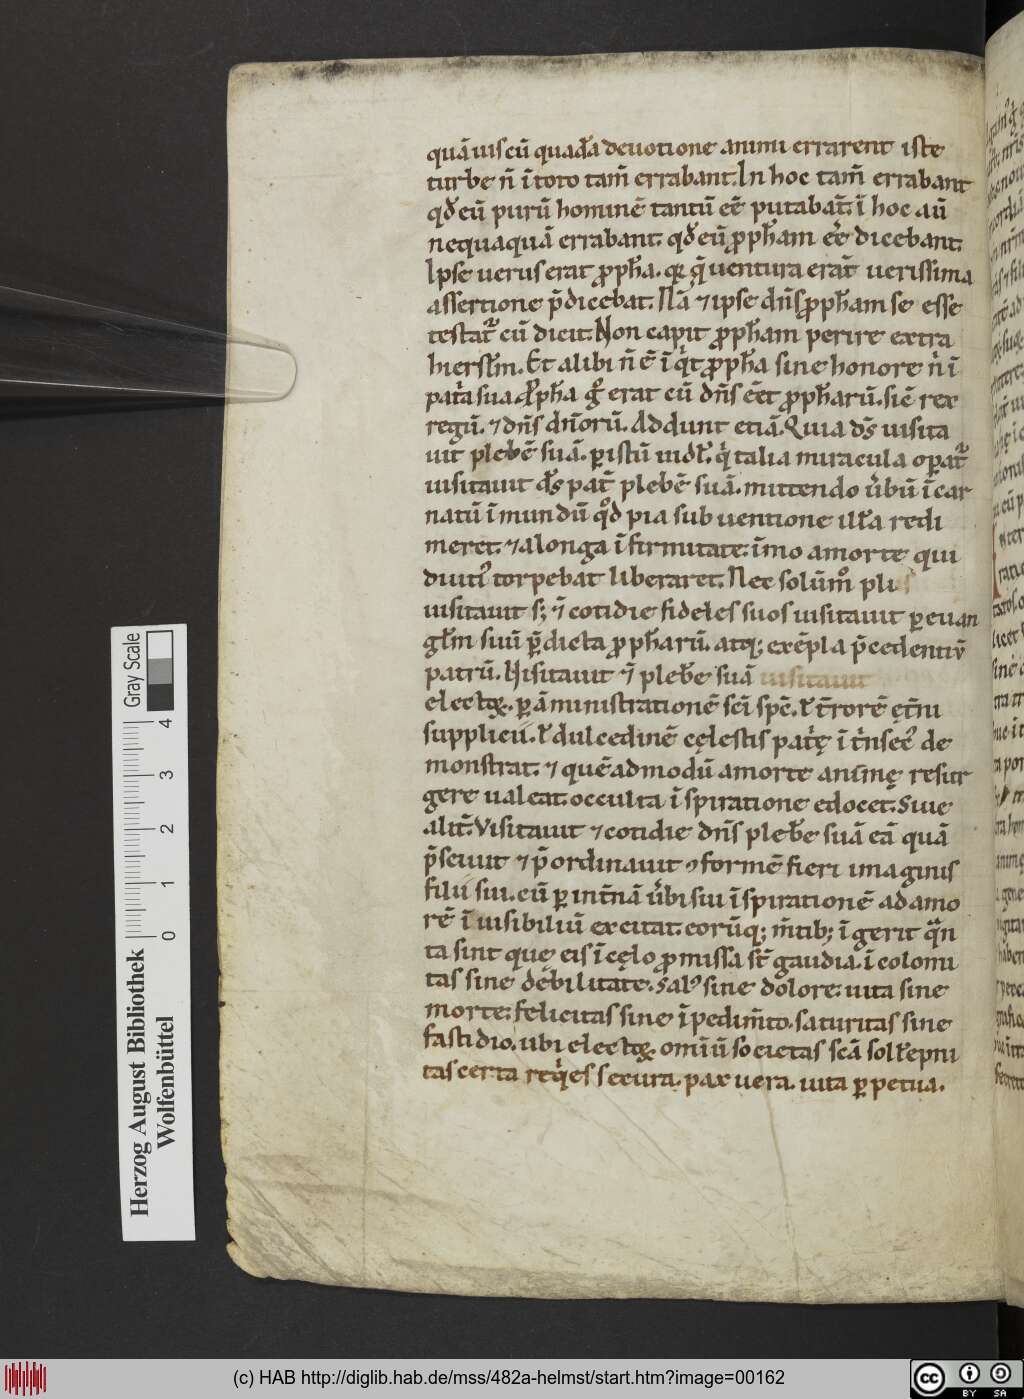 quā uis cū quadā deuotione animi errarent iste
turbe ñ ī toto tam̄ errabant. In hoc tam̄ errabant
qđ eū purū hominē tantū eē putabāt. ī hoc aū
nequaquā errabant. qđ eū ꝓpħam eē dicebant.
Ipse uerus erat ꝓpħa. qr q̄ uentura erāt uerissima
assertione p̄dicebat. Nā ⁊ ipse dñs ꝓpħam se esse
testat᷑ cū dicit. Non capit ꝓpħam perire extra
hierłm. Et alibi ñ ē ī qͥt ꝓpħa sine honore nͥ ī
patͥa sua ꝓpħa gͦ erat cū dñs eēt ꝓpħarū. sic̄ rex
regū. ⁊ dñs dñorū. Addunt etiā. Quia dś uisita
uit plebē suā. ꝑ istū uidꝉ. qͥ talia miracula opat᷑
uisitauit dś pat̄ plebē suā. mittendo ūbū īcar
natū ī mundū qͦd pia subuentione illā redi
meret. ⁊ a longa īfirmitate. īmo a morte qui
diuti᷒ torpebat liberaret. Nec solūmͦ pli
uisitauit s; ⁊̄ cotidie fideles suos uisitauit ꝑ euan
głm suū ꝑ̄dicta ꝓpħarū. atq; exēpla p̄cedentiū
patrū. Uisitauit ⁊̄ plebē suā uisitauit
electoꝝ. ꝑ āministrationē sc̄i spc̄. ꝉ t̄rorē ęt̄ni
supplicii. ꝉ dulcedinē cęlestis patͥę ī t̄nsec̄ de
monstrat. ⁊ quēadmodū a morte animę resur
gere ualeat. occulta īspiratione edocet. Siue
alit̄. Visitauit ⁊ cotidie dñs plebē suā eā quā
p̄sciuit ⁊ p̄ordinauit ꝯformē fieri imaginis
filii sui. cū ꝑ int̄nā ūbi sui īspirationē ad amo
rē īuisibiliū excitat. eorūq; m̄tib; īgerit qͣn
ta sint que eis ī cęlo ꝓmissa st̄ gaudia. īcolomi
tas sine debilitate. sal᷒ sine dolore. uita sine
morte. felicitas sine īpedim̄to. saturitas sine
fastidio. ubi electoꝝ omiū societas sc̄a sollēpni
tas certa reqͥes secura. pax uera. uita ꝑpetua.
Herzog August Bibliothek
Wolfenbüttel
0 1 2 3 4
Gray Scale
(c) HAB http://diglib.hab.de/mss/482a-helmst/start.htm?image=00162
cc BY SA